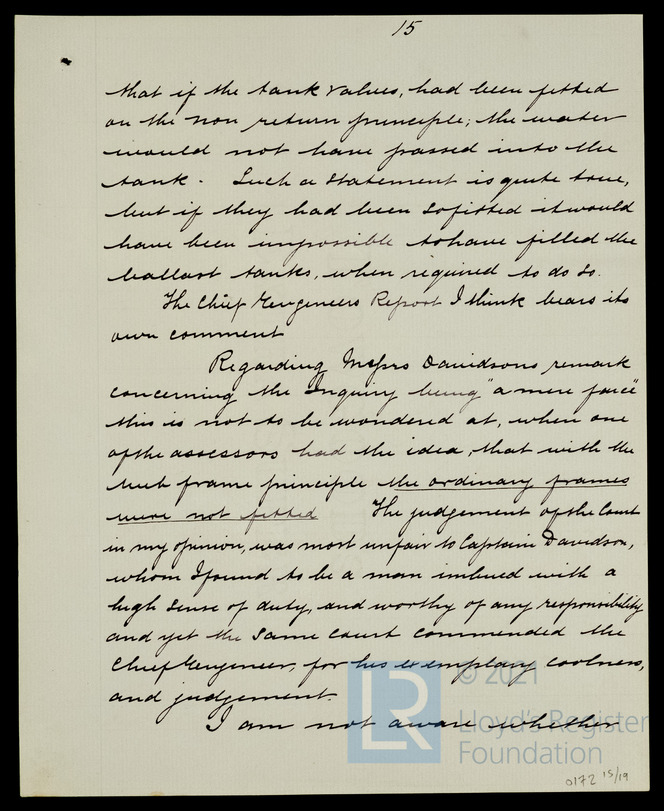 15
that if the tank valves, had been fitted
on the non return principle; the water
would not have passed into the
tank. Such a statement is quite true,
but if they had been so fitted it would
have been impossible to have filled the
ballast tanks, when required to do so.
The Chief Engineers Report I think bears its
own comment
Regarding Messrs Davidsons remark
concerning the Inquiry being "a mere farce"
this is not to be wondered at, when one
of the assessors had the idea, that with the
web frame principle the ordinary frames
were not fitted The judgement of the Court
in my opinion, was most unfair to Captain Davidson,
whom I found to be a man imbued with a
high sense of duty, and worthy of any responsibility
and yet the same Court commended the
Chief Engineer, for his exemplary coolness,
and judgement.
I am not aware whether
© 2021
LR
Lloyd's Register
Foundation
0172 15/19